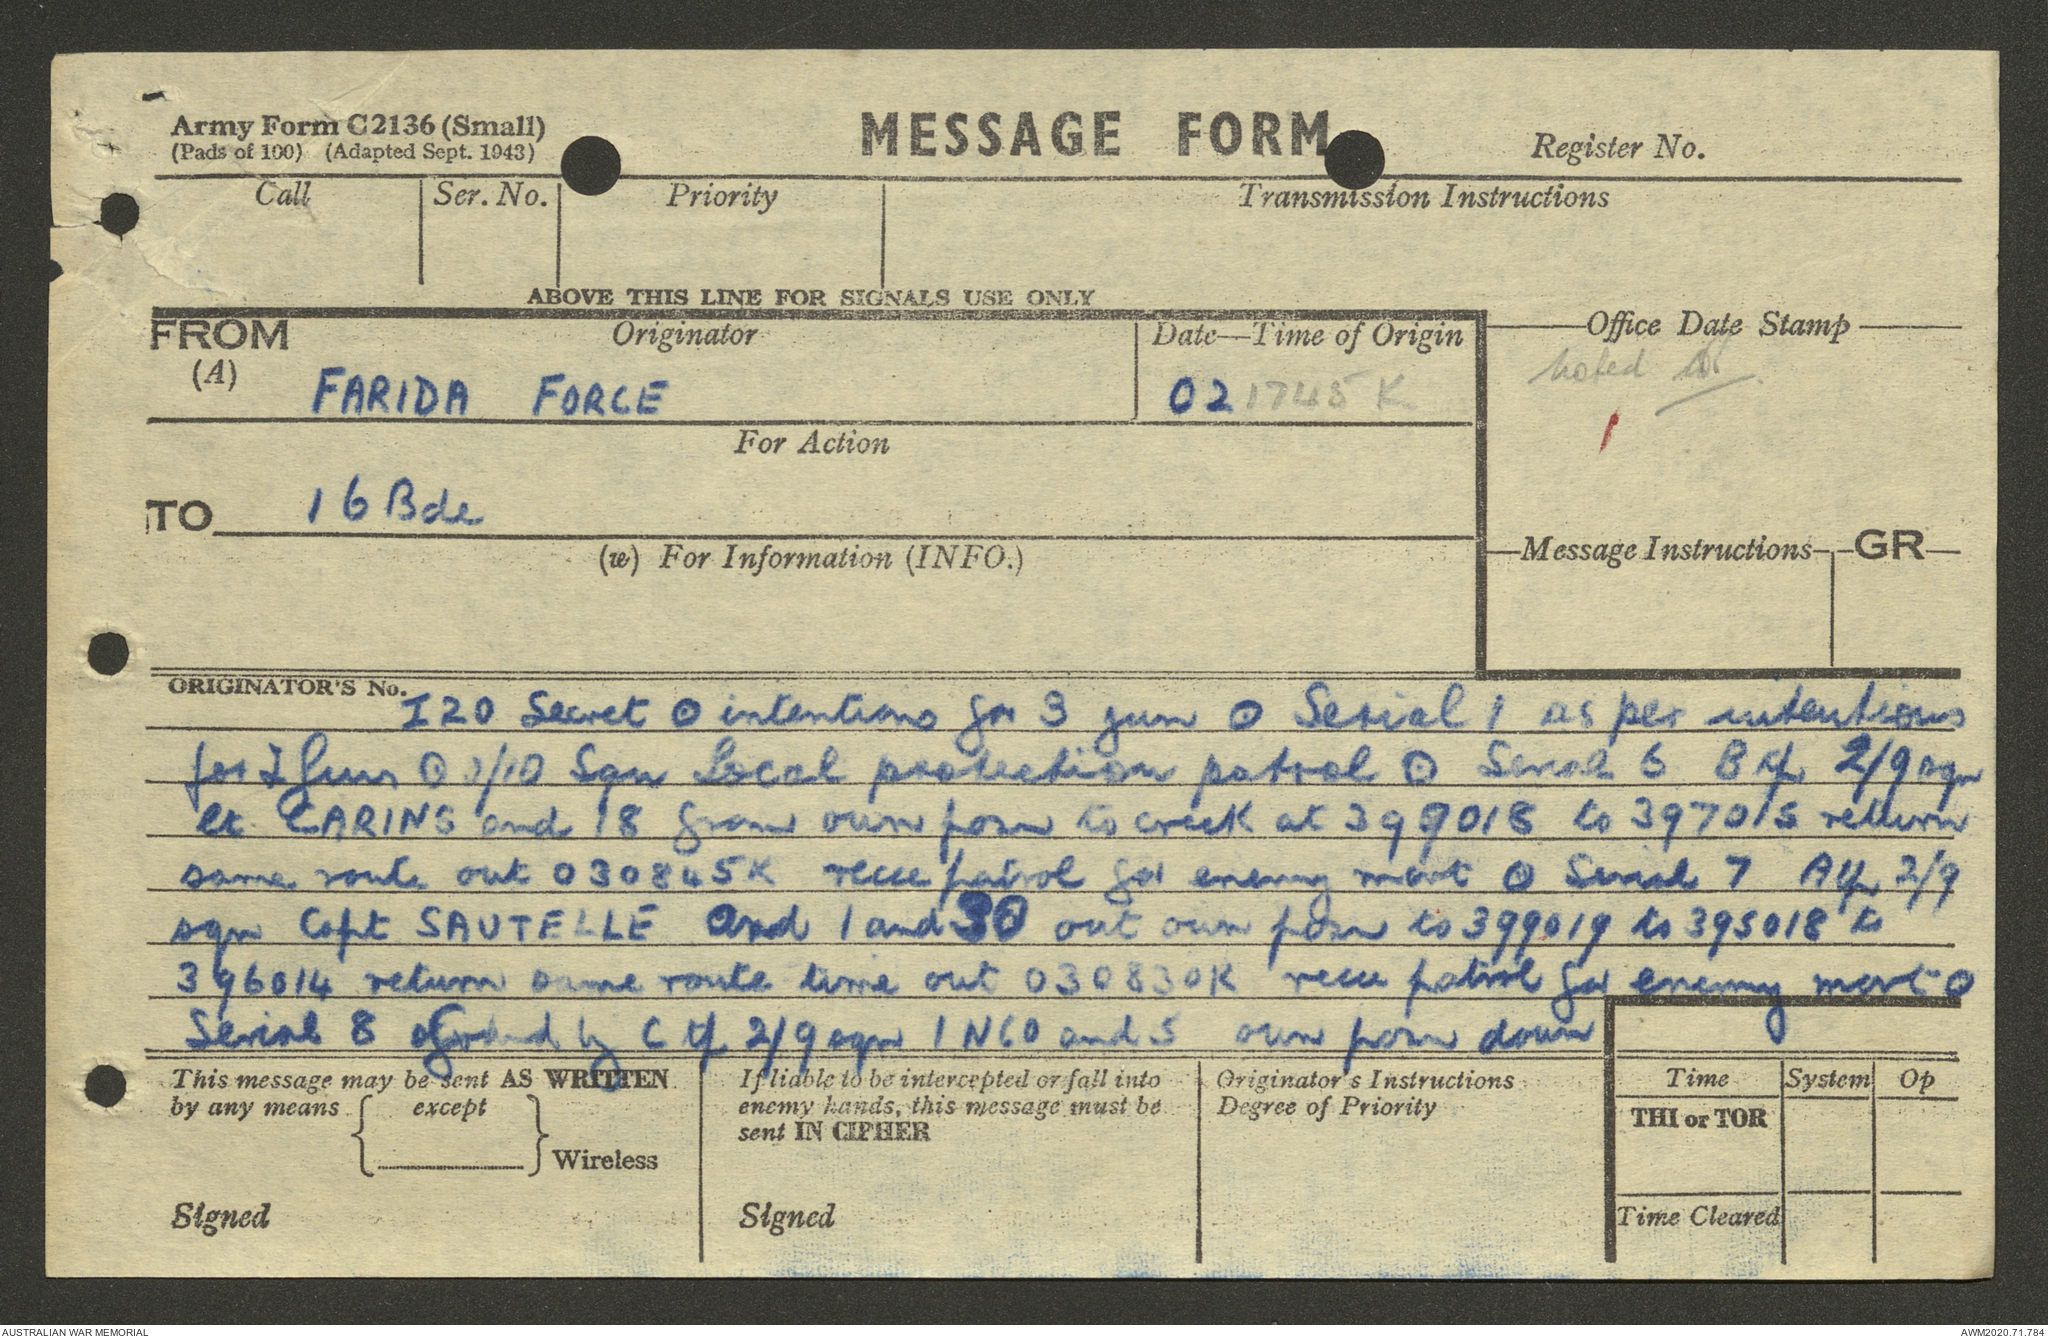 Army Form C2136 (Small)
(Pads of 100) (Adapted Sept. 1943)
MESSAGE FORM
Register No.
Call
Ser. No.
Priority
Transmission Instructions
ABOVE THIS LINE FOR SIGNALS USE ONLY
FROM
(A)
Originator
Date—Time of Origin
Office Date Stamp
noted
FARIDA FORCE
021745K
For Action
TO
16 Bde
(w) For Information (INFO.)
Message Instructions
GR
ORIGINATOR'S No.
I20 Secret O intentions for 3 jun O Serial 1 as per intentions
for 2 Jun O 2/10 Sqn Local protection patrol O Serial 6 B tp 2/9 sqn
Lt. CARING and 18 from own posn to creek at 399018 to 397015 return
same route out 030845K recce patrol for enemy mort O Serial 7 A tp 2/9
sqn Capt SAUTELLE and 1 and 30 out own posn to 399019 to 395018 to
396014 return same route time out 030830K recce patrol for enemy mort O
Serial 8 found by C tp 2/9 sqn 1 NCO and 5 own posn down
This message may be sent AS WRITTEN
by any means
except
Wireless
Signed
If liable to be intercepted or fall into
enemy hands, this message must be
sent IN CIPHER
Signed
Originator's Instructions
Degree of Priority
Time
System
Op
THI or TOR
Time Cleared
AUSTRALIAN WAR MEMORIAL
AWM2020.71.784